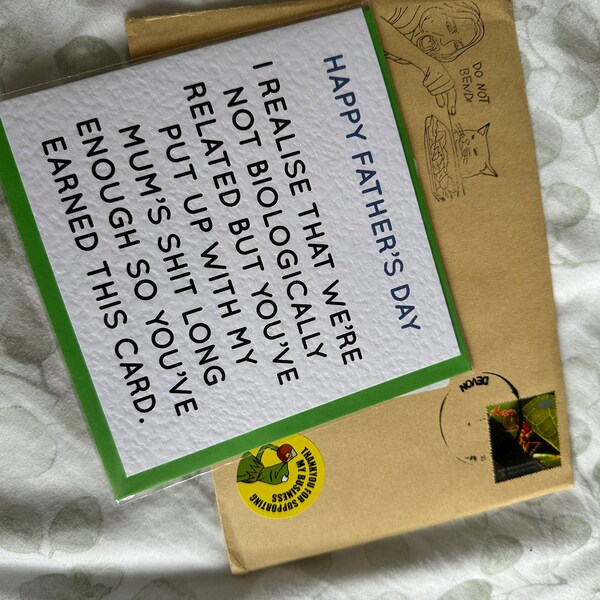 HAPPY FATHER'S DAY
I REALISE THAT WE'RE
NOT BIOLOGICALLY
RELATED BUT YOU'VE
PUT UP WITH MY
MUM'S SHIT LONG
ENOUGH SO YOU'VE
EARNED THIS CARD.
DO NOT
BEND!
DEVON
THANKYOU FOR SUPPORTING
MY BUSINESS